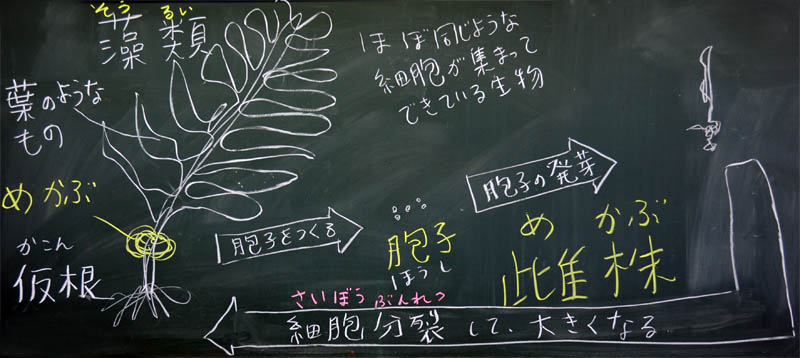 そう るい
藻類
ほぼ同じような
細胞が集まって
できている生物
葉のような
もの
めかぶ
かこん
仮根
胞子をつくる
胞子
ほうし
胞子の発芽
め かぶ
雌株
さいぼう ぶんれつ
細胞分裂して、大きくなる